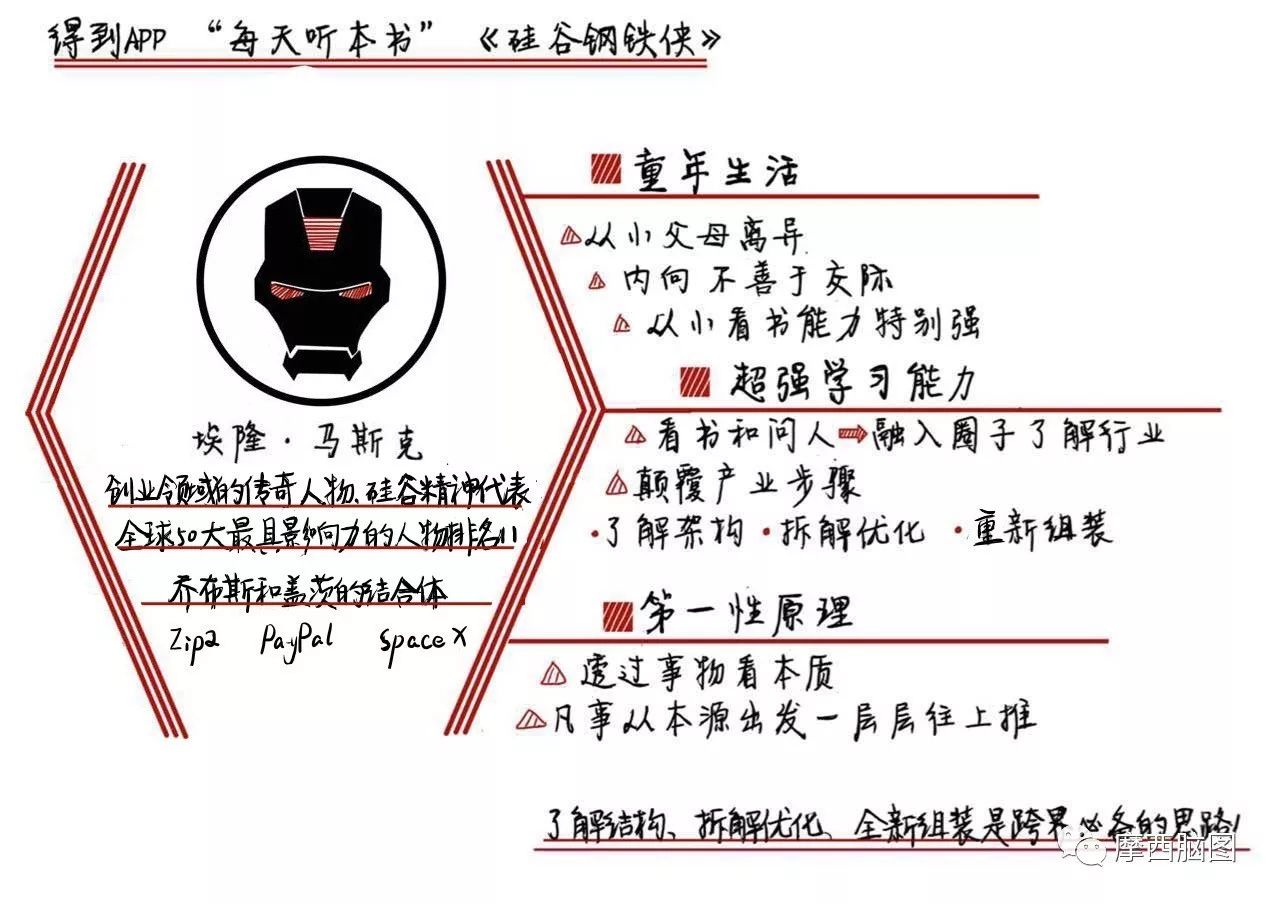 得到APP “每天听本书” 《硅谷钢铁侠》
埃隆·马斯克
创业领域的传奇人物、硅谷精神代表
全球50大最具影响力的人物排名11
乔布斯和盖茨的结合体
Zip2 PayPal SpaceX
童年生活
从小父母离异
内向 不善于交际
从小看书能力特别强
超强学习能力
看书和问人➡融入圈子了解行业
颠覆产业步骤
·了解架构 ·拆解优化 ·重新组装
第一性原理
透过事物看本质
凡事从本源出发一层层往上推
了解结构、拆解优化、全新组装是跨界必备的思路!
摩西脑图